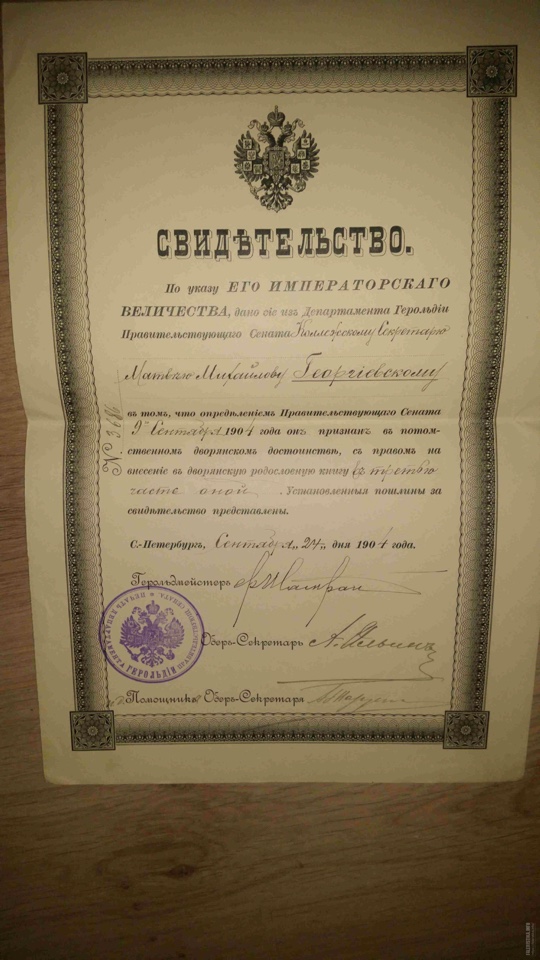 СВИДѢТЕЛЬСТВО.
По указу ЕГО ИМПЕРАТОРСКАГО
ВЕЛИЧЕСТВА, дано сіе изъ Департамента Герольдіи
Правительствующаго Сената Коллежскому Секретарю
Матвѣю Михайлову Георгіевскому
въ томъ, что опредѣленіемъ Правительствующаго Сената
9 Сентября 1904 года онъ признанъ въ потом-
ственномъ дворянскомъ достоинствѣ, съ правомъ на
внесеніе въ дворянскую родословную книгу въ третью
часть оной. Установленныя пошлины за
свидѣтельство представлены.
С.-Петербургъ, Сентября „24„ дня 1904 года.
№ 3686
Герольдмейстеръ
Оберъ-Секретарь
Помощникъ Оберъ-Секретаря
ПЕЧАТЬ ДЕПАРТАМЕНТА ГЕРОЛЬДІИ ПРАВИТЕЛЬСТВУЮЩАГО СЕНАТА